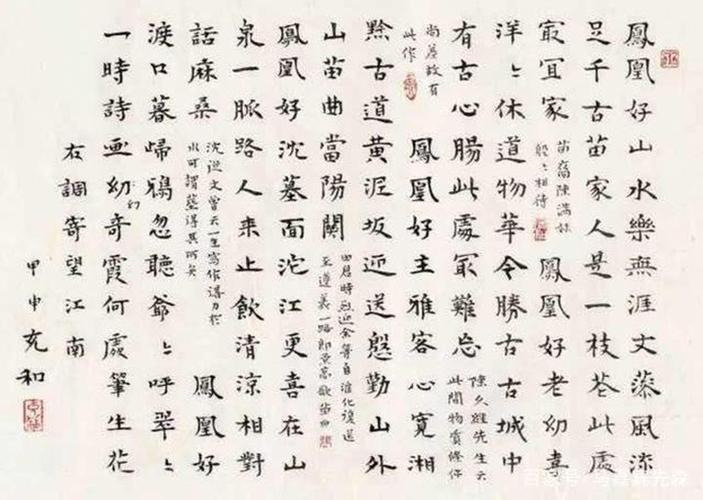 鳳凰好山水樂無涯文藻風流
足千古苗家人是一枝花此處
最宜家
苗裔陳滿妹
殷々相待
鳳凰好老幼喜
洋々休道物華今勝古古城中
有古心腸此處最難忘
陳久經先生云
此間物質條件
尚差故有
此作
鳳凰好主雅客心寬湘
黔古道黄泥坂迎送慇勤山外
山苗曲當陽關
田君時烈迎余等自淮化復送
至遵義一路即景高歌苗曲
鳳凰好沈墓面沱江更喜在山
泉一脈路人來止飲清涼相對
話麻桑
沈從文曾云一生寫作得力於
水可謂墓得其所矣
鳳凰好
渡口暮歸鴉忽聽爺々呼翠々
一時詩画幼奇霞何處筆生花
幻
右調寄望江南
甲申充和
百家号